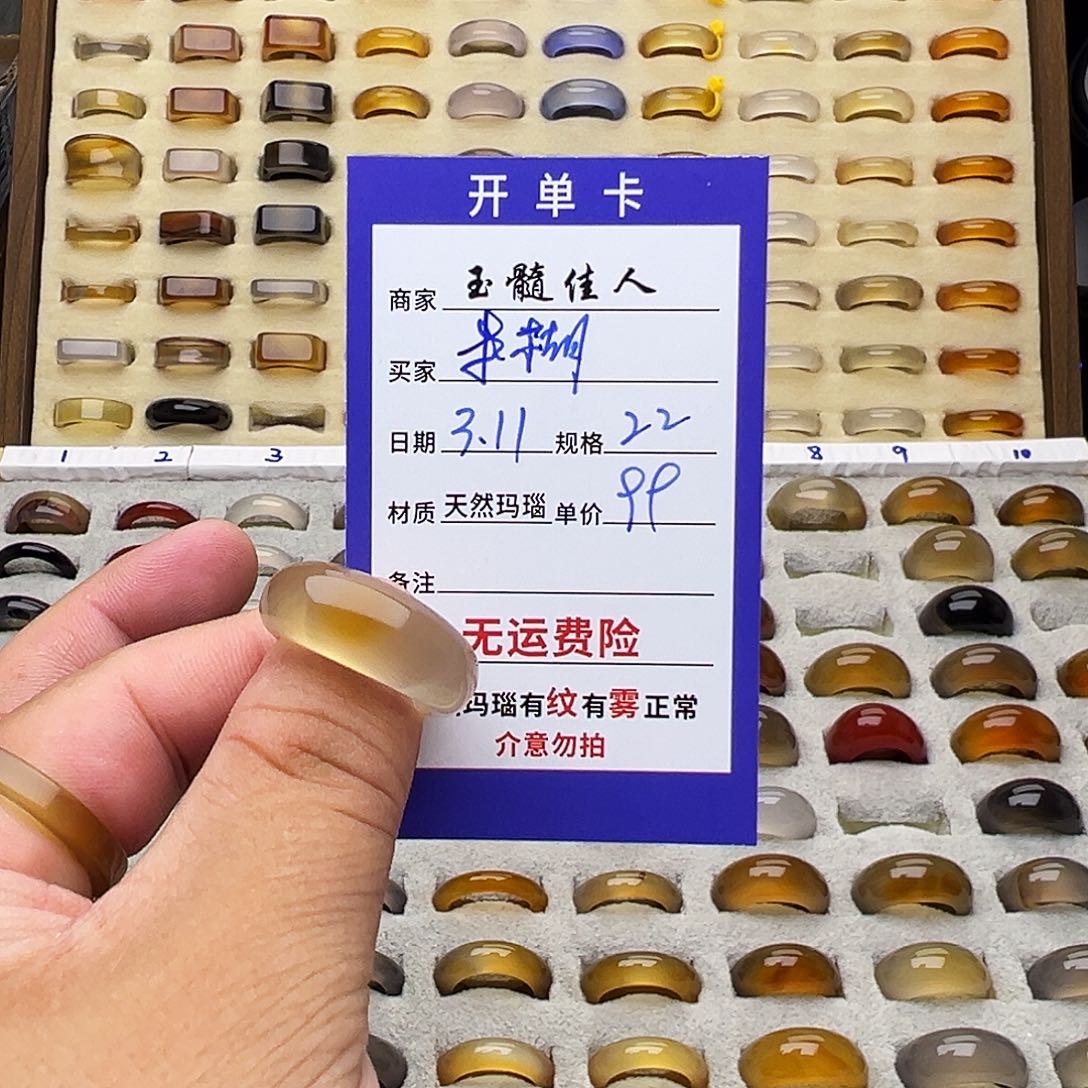 开单卡
商家 玉髓佳人
买家
日期 3.11 规格 22
材质 天然玛瑙 单价 99
备注
无运费险
玛瑙有纹有雾正常
介意勿拍
1 2 3 8 9 10